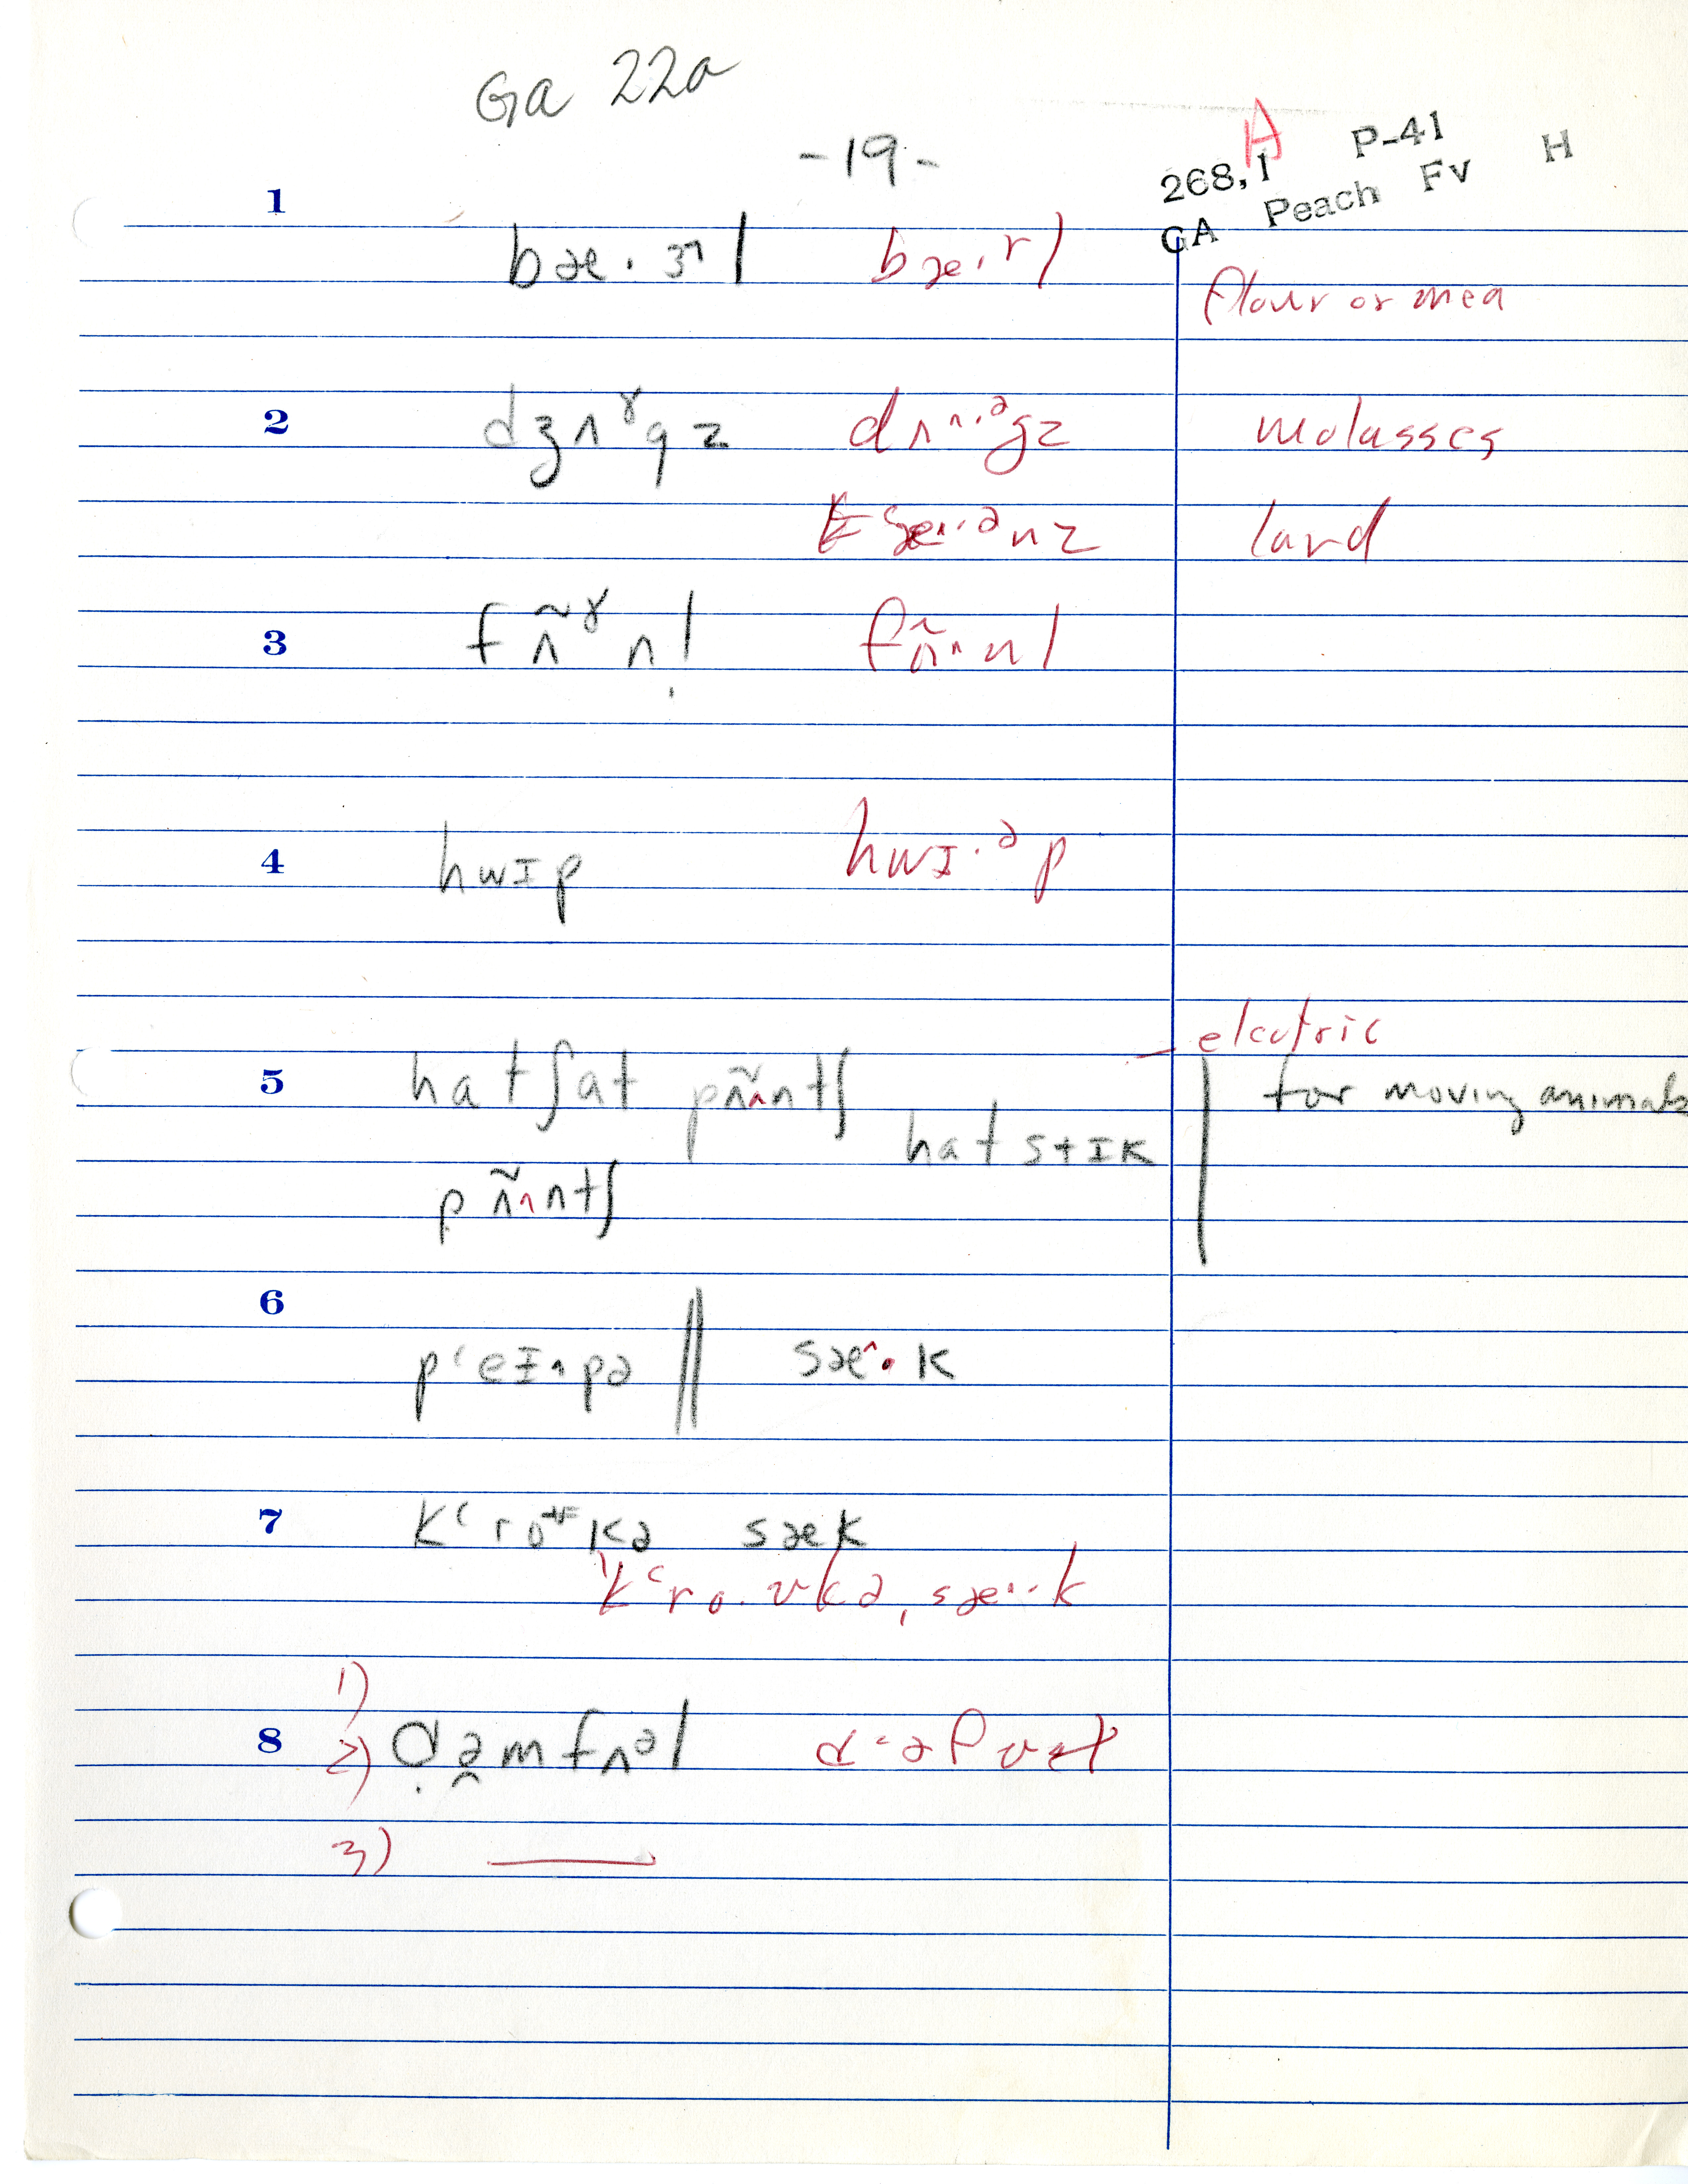 Ga 22a
-19-
A
268,1 P-41
GA Peach Fv H
1
bæ·ɝl bæ·rl
flour or mea
2
dʒʌˠgz dʌ^·ᵊgz molasses
sæ^·ᵊnz lard
3
fʌ̃ˠnl fʌ̃^·nl
4
hwɪp hwɪ·ᵊp
electric
5
hatʃat pʌ̃^ntʃ for moving animals
hat stɪk
pʌ̃^ntʃ
6
pʻeɪ^pə || sæ^·k
7
kʻroʊkə sæk
kʻro·ʊkə, sæ^·k
1)
8
2) ɑə̯mfʌᵊl
3) —